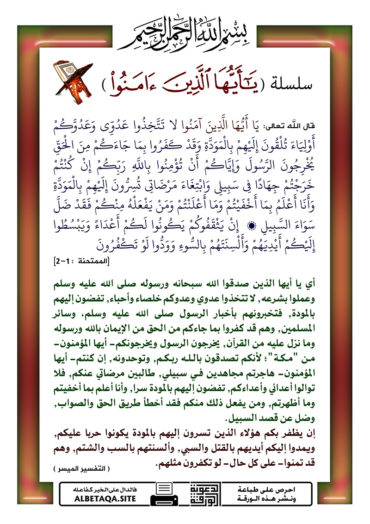 بسم الله الرحمن الرحيم
سلسلة ( يَٰٓأَيُّهَا ٱلَّذِينَ ءَامَنُوا۟ )
قال الله تعالى: يَا أَيُّهَا الَّذِينَ آمَنُوا لا تَتَّخِذُوا عَدُوِّي وَعَدُوَّكُمْ
أَوْلِيَاءَ تُلْقُونَ إِلَيْهِمْ بِالْمَوَدَّةِ وَقَدْ كَفَرُوا بِمَا جَاءَكُمْ مِنَ الْحَقِّ
يُخْرِجُونَ الرَّسُولَ وَإِيَّاكُمْ أَنْ تُؤْمِنُوا بِاللَّهِ رَبِّكُمْ إِنْ كُنْتُمْ
خَرَجْتُمْ جِهَادًا فِي سَبِيلِي وَابْتِغَاءَ مَرْضَاتِي تُسِرُّونَ إِلَيْهِمْ بِالْمَوَدَّةِ
وَأَنَا أَعْلَمُ بِمَا أَخْفَيْتُمْ وَمَا أَعْلَنْتُمْ وَمَنْ يَفْعَلْهُ مِنْكُمْ فَقَدْ ضَلَّ
سَوَاءَ السَّبِيلِ ۞ إِنْ يَثْقَفُوكُمْ يَكُونُوا لَكُمْ أَعْدَاءً وَيَبْسُطُوا
إِلَيْكُمْ أَيْدِيَهُمْ وَأَلْسِنَتَهُمْ بِالسُّوءِ وَوَدُّوا لَوْ تَكْفُرُونَ
[الممتحنة : 1-2]
أي يا أيها الذين صدقوا الله سبحانه ورسوله صلى الله عليه وسلم
وعملوا بشرعه, لا تتخذوا عدوي وعدوكم خلصاء وأحباء, تفضون إليهم
بالمودة, فتخبرونهم بأخبار الرسول صلى الله عليه وسلم, وسائر
المسلمين, وهم قد كفروا بما جاءكم من الحق من الإيمان بالله ورسوله
وما نزل عليه من القرآن, يخرجون الرسول ويخرجونكم- أيها المؤمنون-
من "مكة"؛ لأنكم تصدقون بالله ربكم, وتوحدونه, إن كنتم- أيها
المؤمنون- هاجرتم مجاهدين في سبيلي, طالبين مرضاتي عنكم, فلا
توالوا أعدائي وأعداءكم, تفضون إليهم بالمودة سرا, وأنا أعلم بما أخفيتم
وما أظهرتم, ومن يفعل ذلك منكم فقد أخطأ طريق الحق والصواب,
وضل عن قصد السبيل.
إن يظفر بكم هؤلاء الذين تسرون إليهم بالمودة يكونوا حربا عليكم,
ويمدوا إليكم أيديهم بالقتل والسبي, وألسنتهم بالسب والشتم, وهم
قد تمنوا- على كل حال- لو تكفرون مثلهم.
( التفسير الميسر )
احرص على طباعة
ونشر هذه الورقة
الدعوية
الورقة
فالدال على الخير كفاعله
ALBETAQA.SITE